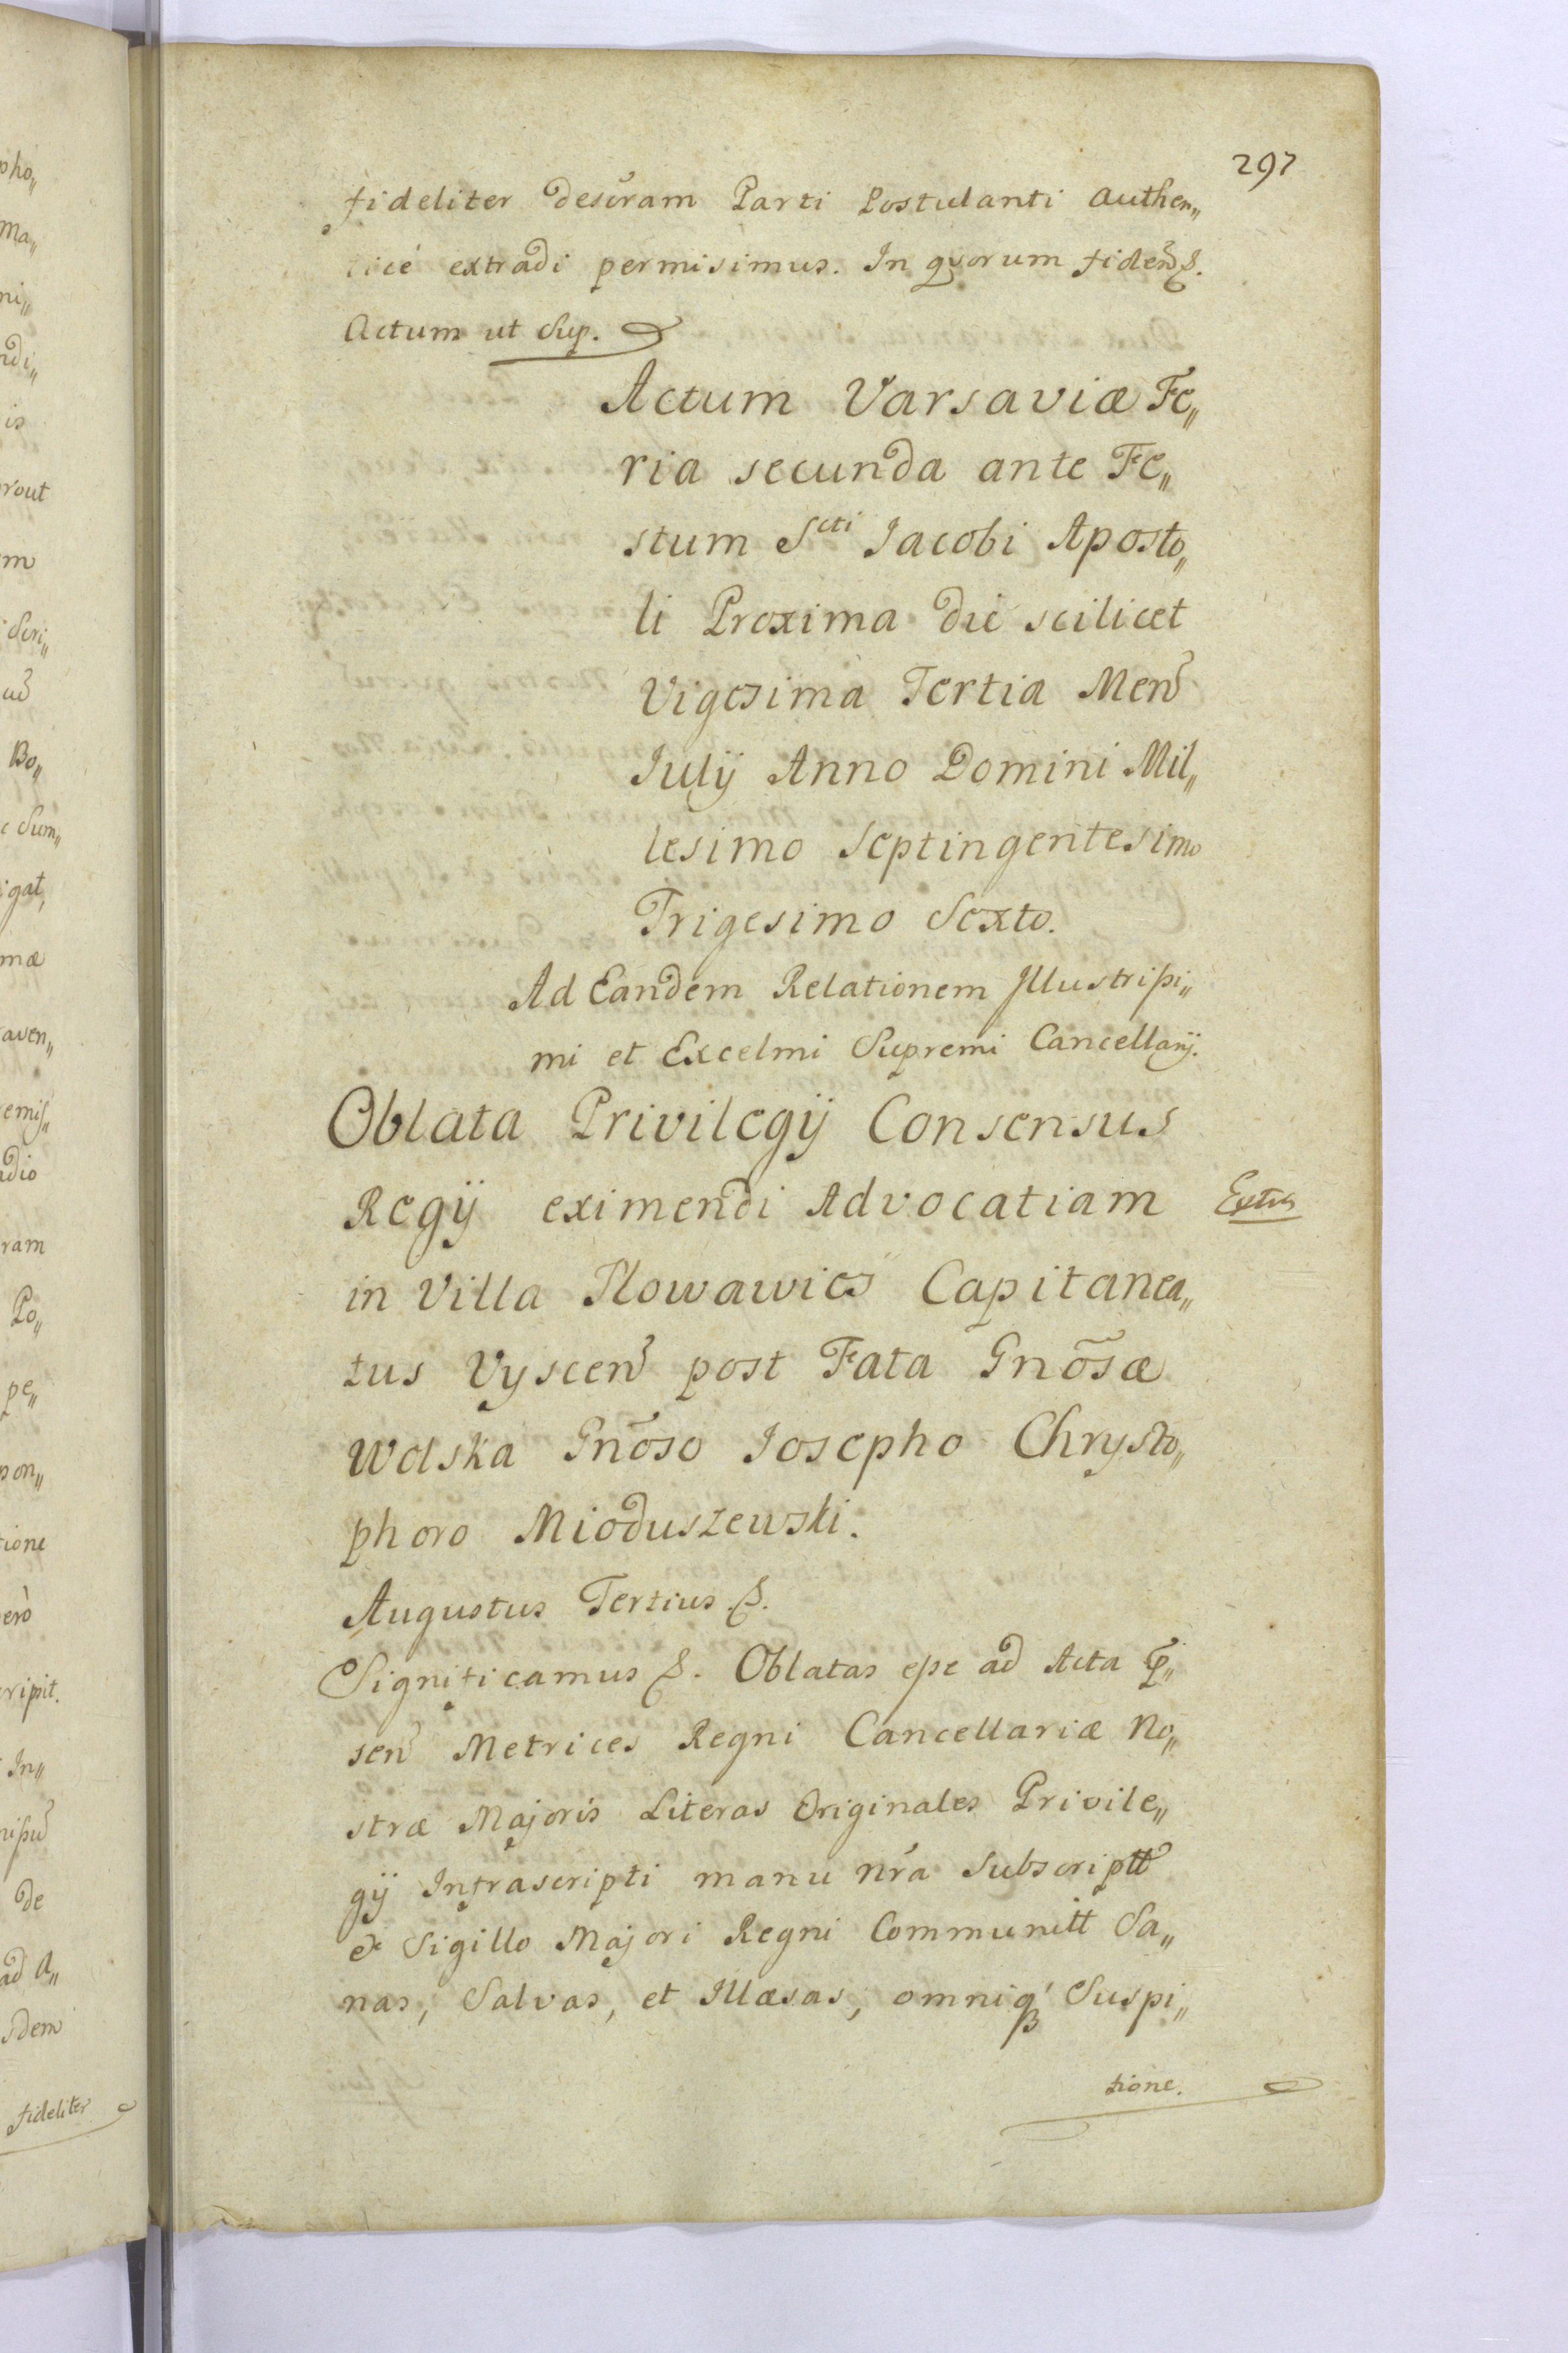 297
fideliter descr̃am Parti Postulanti Authen„
ticé extradi permisimus. In qvorum fidem̃ &.
Actum ut Sup.
Actum Varsaviæ Fe„
ria secunda ante Fe„
stum Scti Jacobi Aposto„
li Proxima die scilicet
Vigesima Tertia Meñ
Julÿ Anno Domini Mil„
lesimo Septingentesimo
Trigesimo Sexto.
Ad Eandem Relationem Illustrißi„
mi et Excelmi Supremi Cancellarÿ.
Oblata Privilegÿ Consensus
Regÿ eximendi Advocatiam
Extra
in Villa Plowawies Capitanea„
tus Vysceñ post Fata Gnõsæ
Wolska Gnõso Josepho Chrysto„
phoro Mioduszewski.
Augustus Tertius &.
Significamus &. Oblatas eße ad Acta p̃„
señ Metrices Regni Cancellariæ No„
stræ Majoris Literas Originales Privile„
gÿ Infrascripti manu nr̃a Subscriptt̃
& Sigillo Majori Regni Communitt Sa„
nas, Salvas, et Illæsas, omniq́ Suspi„
tione.
pho„
ma„
ni„
ndi„
is
rout
m
Scri„
ud̃
Bo„
c Sum„
igat,
mæ
aven„
emiſ„
adio
ram
Po„
pe„
pon„
tione
erò
cripsit.
In„
de
ad A„
sdem
fideliter